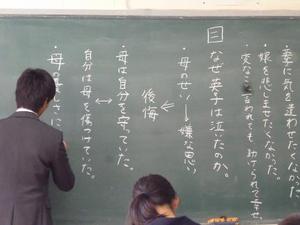 ・妻に気を遣わせたくなかった。
・娘を悲しませたくなかった。
・変なこと言われても助けられて幸せ。
三
なぜ英子は泣いたのか。
・母のせい→嫌な思い
後悔
・母は自分を守っていた。
↔
自分は母を傷つけていた。
・母の